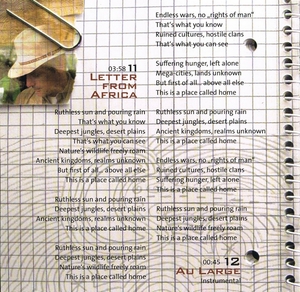 03:58 11
LETTER
FROM
AFRICA
Ruthless sun and pouring rain
That's what you know
Deepest jungles, desert plains
That's what you can see
Nature's wildlife freely roam
Ancient kingdoms, realms unknown
But first of all... above all else
This is a place called home
Ruthless sun and pouring rain
Deepest jungles, desert plains
Ancient kingdoms, realms unknown
This is a place called home
Ruthless sun and pouring rain
Deepest jungles, desert plains
Nature's wildlife freely roam
This is a place called home
Endless wars, no „rights of man"
That's what you know
Ruined cultures, hostile clans
That's what you can see
Suffering hunger, left alone
Mega-cities, lands unknown
But first of all... above all else
This is a place called home
Ruthless sun and pouring rain
Deepest jungles, desert plains
Ancient kingdoms, realms unknown
This is a place called home
Endless wars, no „rights of man"
Ruined cultures, hostile clans
Suffering hunger, left alone
This is a place called home
Ruthless sun and pouring rain
Deepest jungles, desert plains
Nature's wildlife freely roam
This is a place called home
00:45 12
AU LARGE
Instrumental